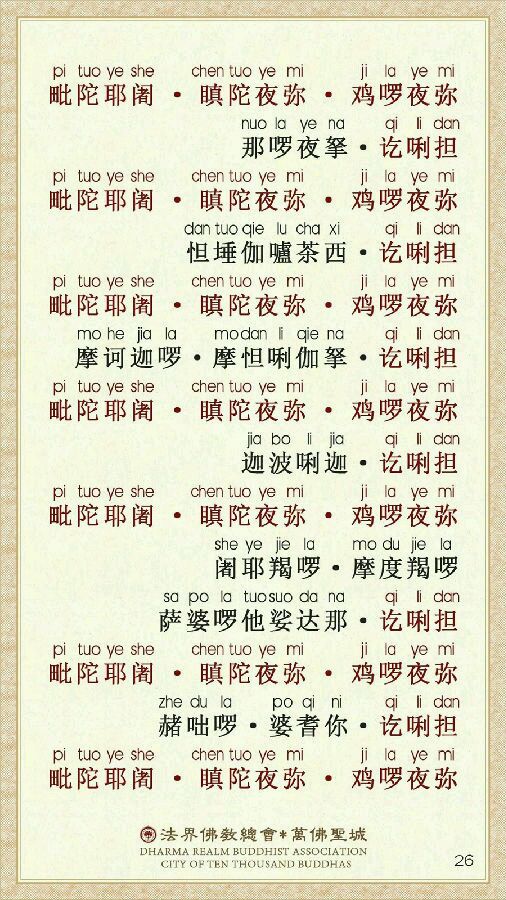 pi tuo ye she chen tuo ye mi ji la ye mi
毗陀耶阇 • 瞋陀夜弥 • 鸡啰夜弥
nuo la ye na qi li dan
那啰夜拏 • 讫唎担
pi tuo ye she chen tuo ye mi ji la ye mi
毗陀耶阇 • 瞋陀夜弥 • 鸡啰夜弥
dan tuo qie lu cha xi qi li dan
怛埵伽嚧茶西 • 讫唎担
pi tuo ye she chen tuo ye mi ji la ye mi
毗陀耶阇 • 瞋陀夜弥 • 鸡啰夜弥
mo he jia la mo dan li qie na qi li dan
摩诃迦啰 • 摩怛唎伽拏 • 讫唎担
pi tuo ye she chen tuo ye mi ji la ye mi
毗陀耶阇 • 瞋陀夜弥 • 鸡啰夜弥
jia bo li jia qi li dan
迦波唎迦 • 讫唎担
pi tuo ye she chen tuo ye mi ji la ye mi
毗陀耶阇 • 瞋陀夜弥 • 鸡啰夜弥
she ye jie la mo du jie la
阇耶羯啰 • 摩度羯啰
sa po la tuo suo da na qi li dan
萨婆啰他娑达那 • 讫唎担
pi tuo ye she chen tuo ye mi ji la ye mi
毗陀耶阇 • 瞋陀夜弥 • 鸡啰夜弥
zhe du la po qi ni qi li dan
赭咄啰 • 婆耆你 • 讫唎担
pi tuo ye she chen tuo ye mi ji la ye mi
毗陀耶阇 • 瞋陀夜弥 • 鸡啰夜弥
法界佛教總會*萬佛聖城
DHARMA REALM BUDDHIST ASSOCIATION
CITY OF TEN THOUSAND BUDDHAS
26